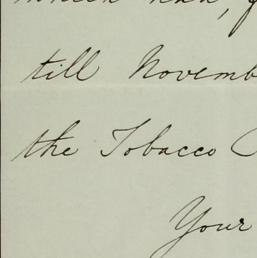 till Novemb
the Tobacco
Your